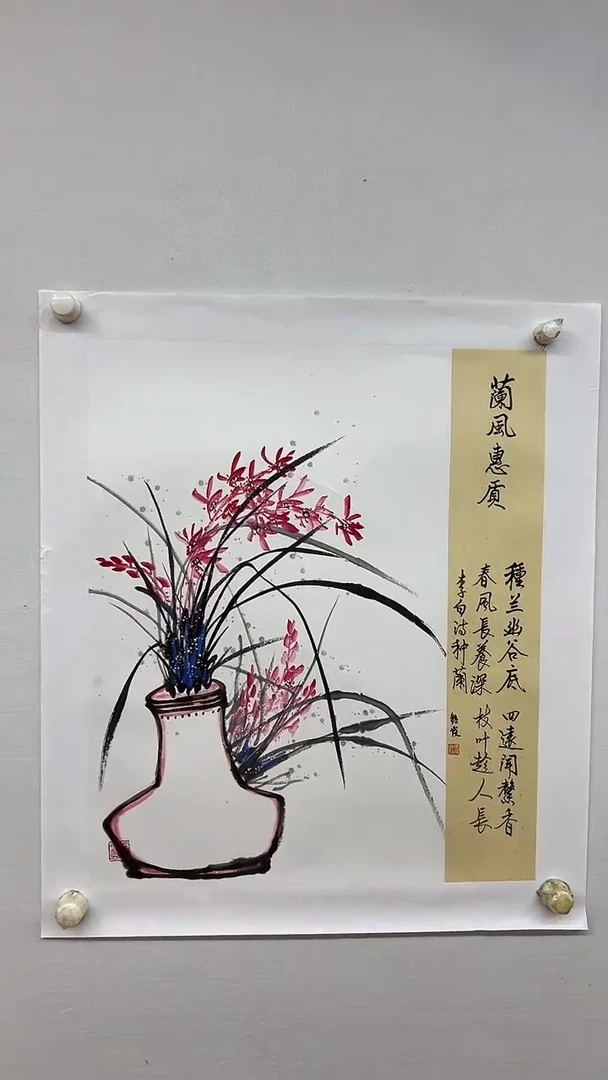 蘭風惠质
種兰幽谷底 四遠闻馨香
春風長養深 枝叶趁人長
李白诗种蘭